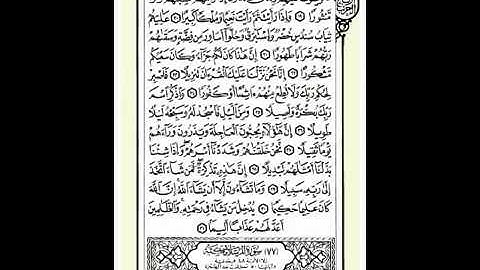 مَّنثُورًا ١٩ وَإِذَا رَأَيْتَ ثَمَّ رَأَيْتَ نَعِيمًا وَمُلْكًا كَبِيرًا ٢٠ عَٰلِيَهُمْ
ثِيَابُ سُندُسٍ خُضْرٌ وَإِسْتَبْرَقٌ وَحُلُّوٓا۟ أَسَاوِرَ مِن فِضَّةٍ وَسَقَىٰهُمْ
رَبُّهُمْ شَرَابًا طَهُورًا ٢١ إِنَّ هَٰذَا كَانَ لَكُمْ جَزَآءً وَكَانَ سَعْيُكُم
مَّشْكُورًا ٢٢ إِنَّا نَحْنُ نَزَّلْنَا عَلَيْكَ ٱلْقُرْءَانَ تَنزِيلًا ٢٣ فَٱصْبِرْ
لِحُكْمِ رَبِّكَ وَلَا تُطِعْ مِنْهُمْ ءَاثِمًا أَوْ كَفُورًا ٢٤ وَٱذْكُرِ ٱسْمَ
رَبِّكَ بُكْرَةً وَأَصِيلًا ٢٥ وَمِنَ ٱلَّيْلِ فَٱسْجُدْ لَهُۥ وَسَبِّحْهُ لَيْلًا
طَوِيلًا ٢٦ إِنَّ هَٰٓؤُلَآءِ يُحِبُّونَ ٱلْعَاجِلَةَ وَيَذَرُونَ وَرَآءَهُمْ
يَوْمًا ثَقِيلًا ٢٧ نَّحْنُ خَلَقْنَٰهُمْ وَشَدَدْنَآ أَسْرَهُمْ وَإِذَا شِئْنَا
بَدَّلْنَآ أَمْثَٰلَهُمْ تَبْدِيلًا ٢٨ إِنَّ هَٰذِهِۦ تَذْكِرَةٌ فَمَن شَآءَ ٱتَّخَذَ
إِلَىٰ رَبِّهِۦ سَبِيلًا ٢٩ وَمَا تَشَآءُونَ إِلَّآ أَن يَشَآءَ ٱللَّهُ إِنَّ ٱللَّهَ
كَانَ عَلِيمًا حَكِيمًا ٣٠ يُدْخِلُ مَن يَشَآءُ فِى رَحْمَتِهِۦ وَٱلظَّٰلِمِينَ
أَعَدَّ لَهُمْ عَذَابًا أَلِيمًا ٣١
(٧٧) سورة المرسلات مكية
إلا الآية ٤٨ فمدنية
وآياتها ٥٠ نزلت بعد الهمزة